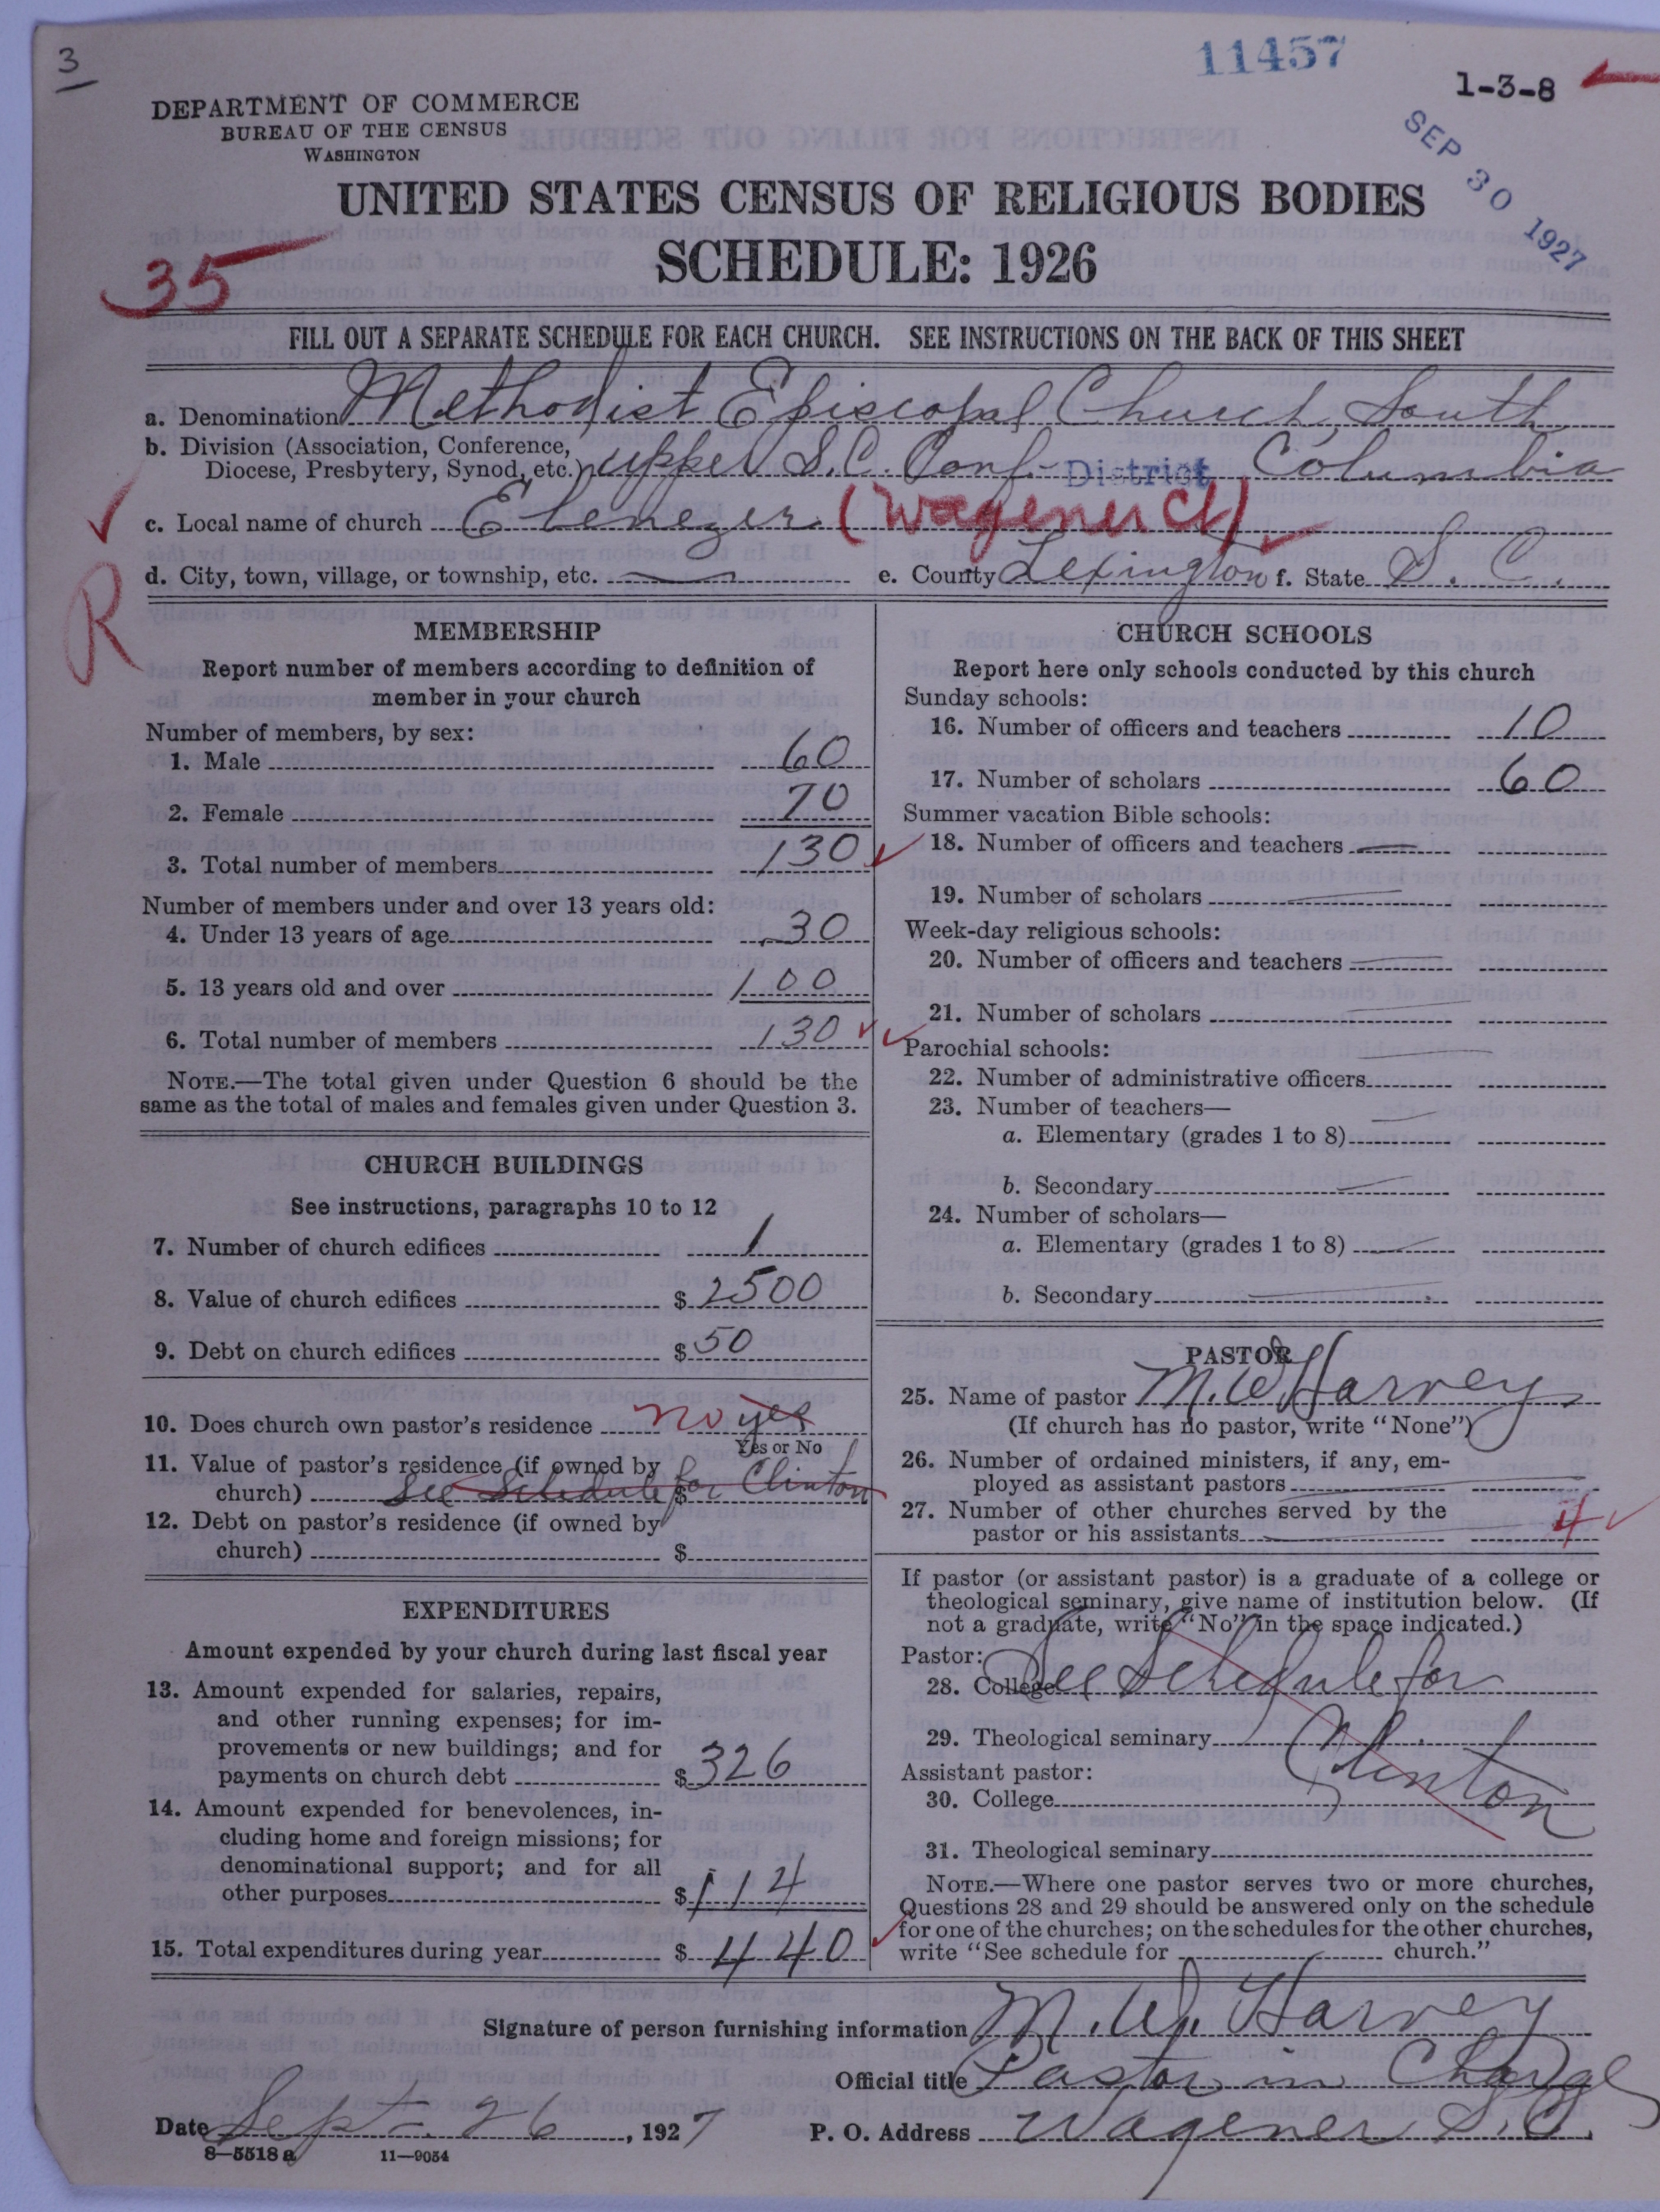 3
11457
1-3-8
DEPARTMENT OF COMMERCE
BUREAU OF THE CENSUS
WASHINGTON
SEP 30 1927
UNITED STATES CENSUS OF RELIGIOUS BODIES
SCHEDULE: 1926
35
FILL OUT A SEPARATE SCHEDULE FOR EACH CHURCH. SEE INSTRUCTIONS ON THE BACK OF THIS SHEET
a. Denomination Methodist Episcopal Church, South
b. Division (Association, Conference,
Diocese, Presbytery, Synod, etc.) Upper S.C. Conf. - District Columbia
c. Local name of church Ebenezer (Wagener Ch)
d. City, town, village, or township, etc. — e. County Lexington f. State S. C.
R
MEMBERSHIP
Report number of members according to definition of
member in your church
Number of members, by sex:
1. Male 60
2. Female 70
3. Total number of members 130
Number of members under and over 13 years old:
4. Under 13 years of age 30
5. 13 years old and over 100
6. Total number of members 130
NOTE.—The total given under Question 6 should be the
same as the total of males and females given under Question 3.
CHURCH BUILDINGS
See instructions, paragraphs 10 to 12
7. Number of church edifices 1
8. Value of church edifices $ 2500
9. Debt on church edifices $ 50
10. Does church own pastor's residence no yes
Yes or No
11. Value of pastor's residence (if owned by
church) See Schedule for Clinton $
12. Debt on pastor's residence (if owned by
church) $
EXPENDITURES
Amount expended by your church during last fiscal year
13. Amount expended for salaries, repairs,
and other running expenses; for im-
provements or new buildings; and for
payments on church debt $ 326
14. Amount expended for benevolences, in-
cluding home and foreign missions; for
denominational support; and for all
other purposes $ 114
15. Total expenditures during year $ 440
CHURCH SCHOOLS
Report here only schools conducted by this church
Sunday schools:
16. Number of officers and teachers 10
17. Number of scholars 60
Summer vacation Bible schools:
18. Number of officers and teachers —
19. Number of scholars —
Week-day religious schools:
20. Number of officers and teachers —
21. Number of scholars —
Parochial schools:
22. Number of administrative officers —
23. Number of teachers—
a. Elementary (grades 1 to 8) —
b. Secondary —
24. Number of scholars—
a. Elementary (grades 1 to 8) —
b. Secondary —
PASTOR
25. Name of pastor M. W. Harvey
(If church has no pastor, write "None")
26. Number of ordained ministers, if any, em-
ployed as assistant pastors —
27. Number of other churches served by the
pastor or his assistants — 4
If pastor (or assistant pastor) is a graduate of a college or
theological seminary, give name of institution below. (If
not a graduate, write "No" in the space indicated.)
Pastor:
28. College See Schedule for
29. Theological seminary Clinton
Assistant pastor:
30. College
31. Theological seminary
NOTE.—Where one pastor serves two or more churches,
Questions 28 and 29 should be answered only on the schedule
for one of the churches; on the schedules for the other churches,
write "See schedule for ______ church."
Signature of person furnishing information M. W. Harvey
Official title Pastor in Charge
Date Sept. 26, 1927 P. O. Address Wagener S.C.
8—5518 a 11—9054